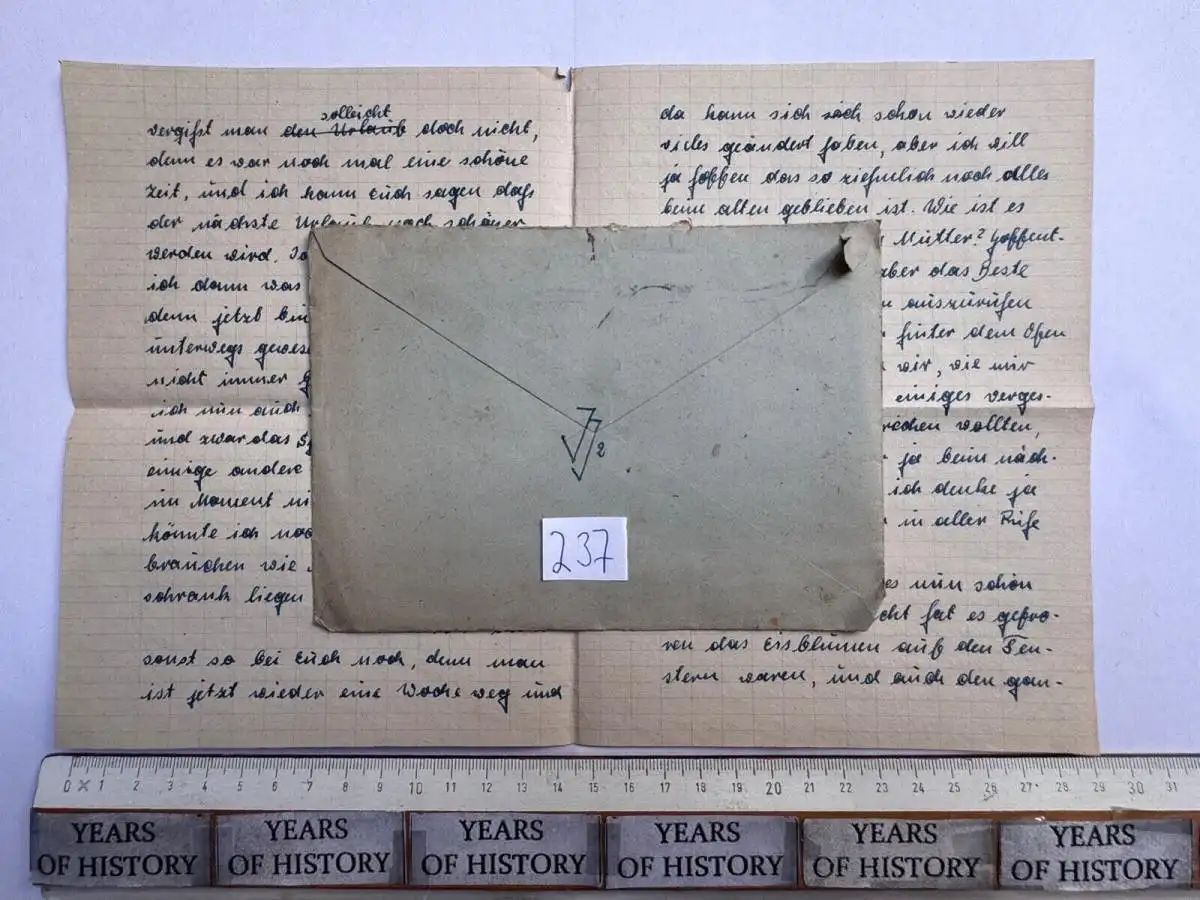 solleicht
vergißt man den Urlaub doch nicht,
denn es war noch mal eine schöne
Zeit, und ich kann Euch sagen daß
der nächste Urlaub noch schöner
werden wird.
ich dann was
denn jetzt bin
unterwegs
nicht immer
ich nun auch
und zwar das
einige andere
im Moment
könnte ich noch
brauchen wie
schrank liegen
sonst so bei Euch noch, denn man
ist jetzt wieder eine Woche weg und
da kann sich sich schon wieder
vieles geändert haben, aber ich will
ja hoffen das so ziehmlich noch alles
beim alten geblieben ist. Wie ist es
Mutter? Hoffent-
aber das Beste
auszurufen
hinter dem Ofen
wir, wie mir
einiges verges-
wollten,
ja beim näch-
ich denke ja
in aller Ruhe
es nun schon
hat es gefro-
ren das Eisblumen auf den Fen-
stern waren, und auch den gan-
72
237
0 1 2 3 4 5 6 7 8 9 10 11 12 13 14 15 16 17 18 19 20 21 22 23 24 25 26 27 28 29 30 31
YEARS OF HISTORY
YEARS OF HISTORY
YEARS OF HISTORY
YEARS OF HISTORY
YEARS OF HISTORY
YEARS OF HISTORY